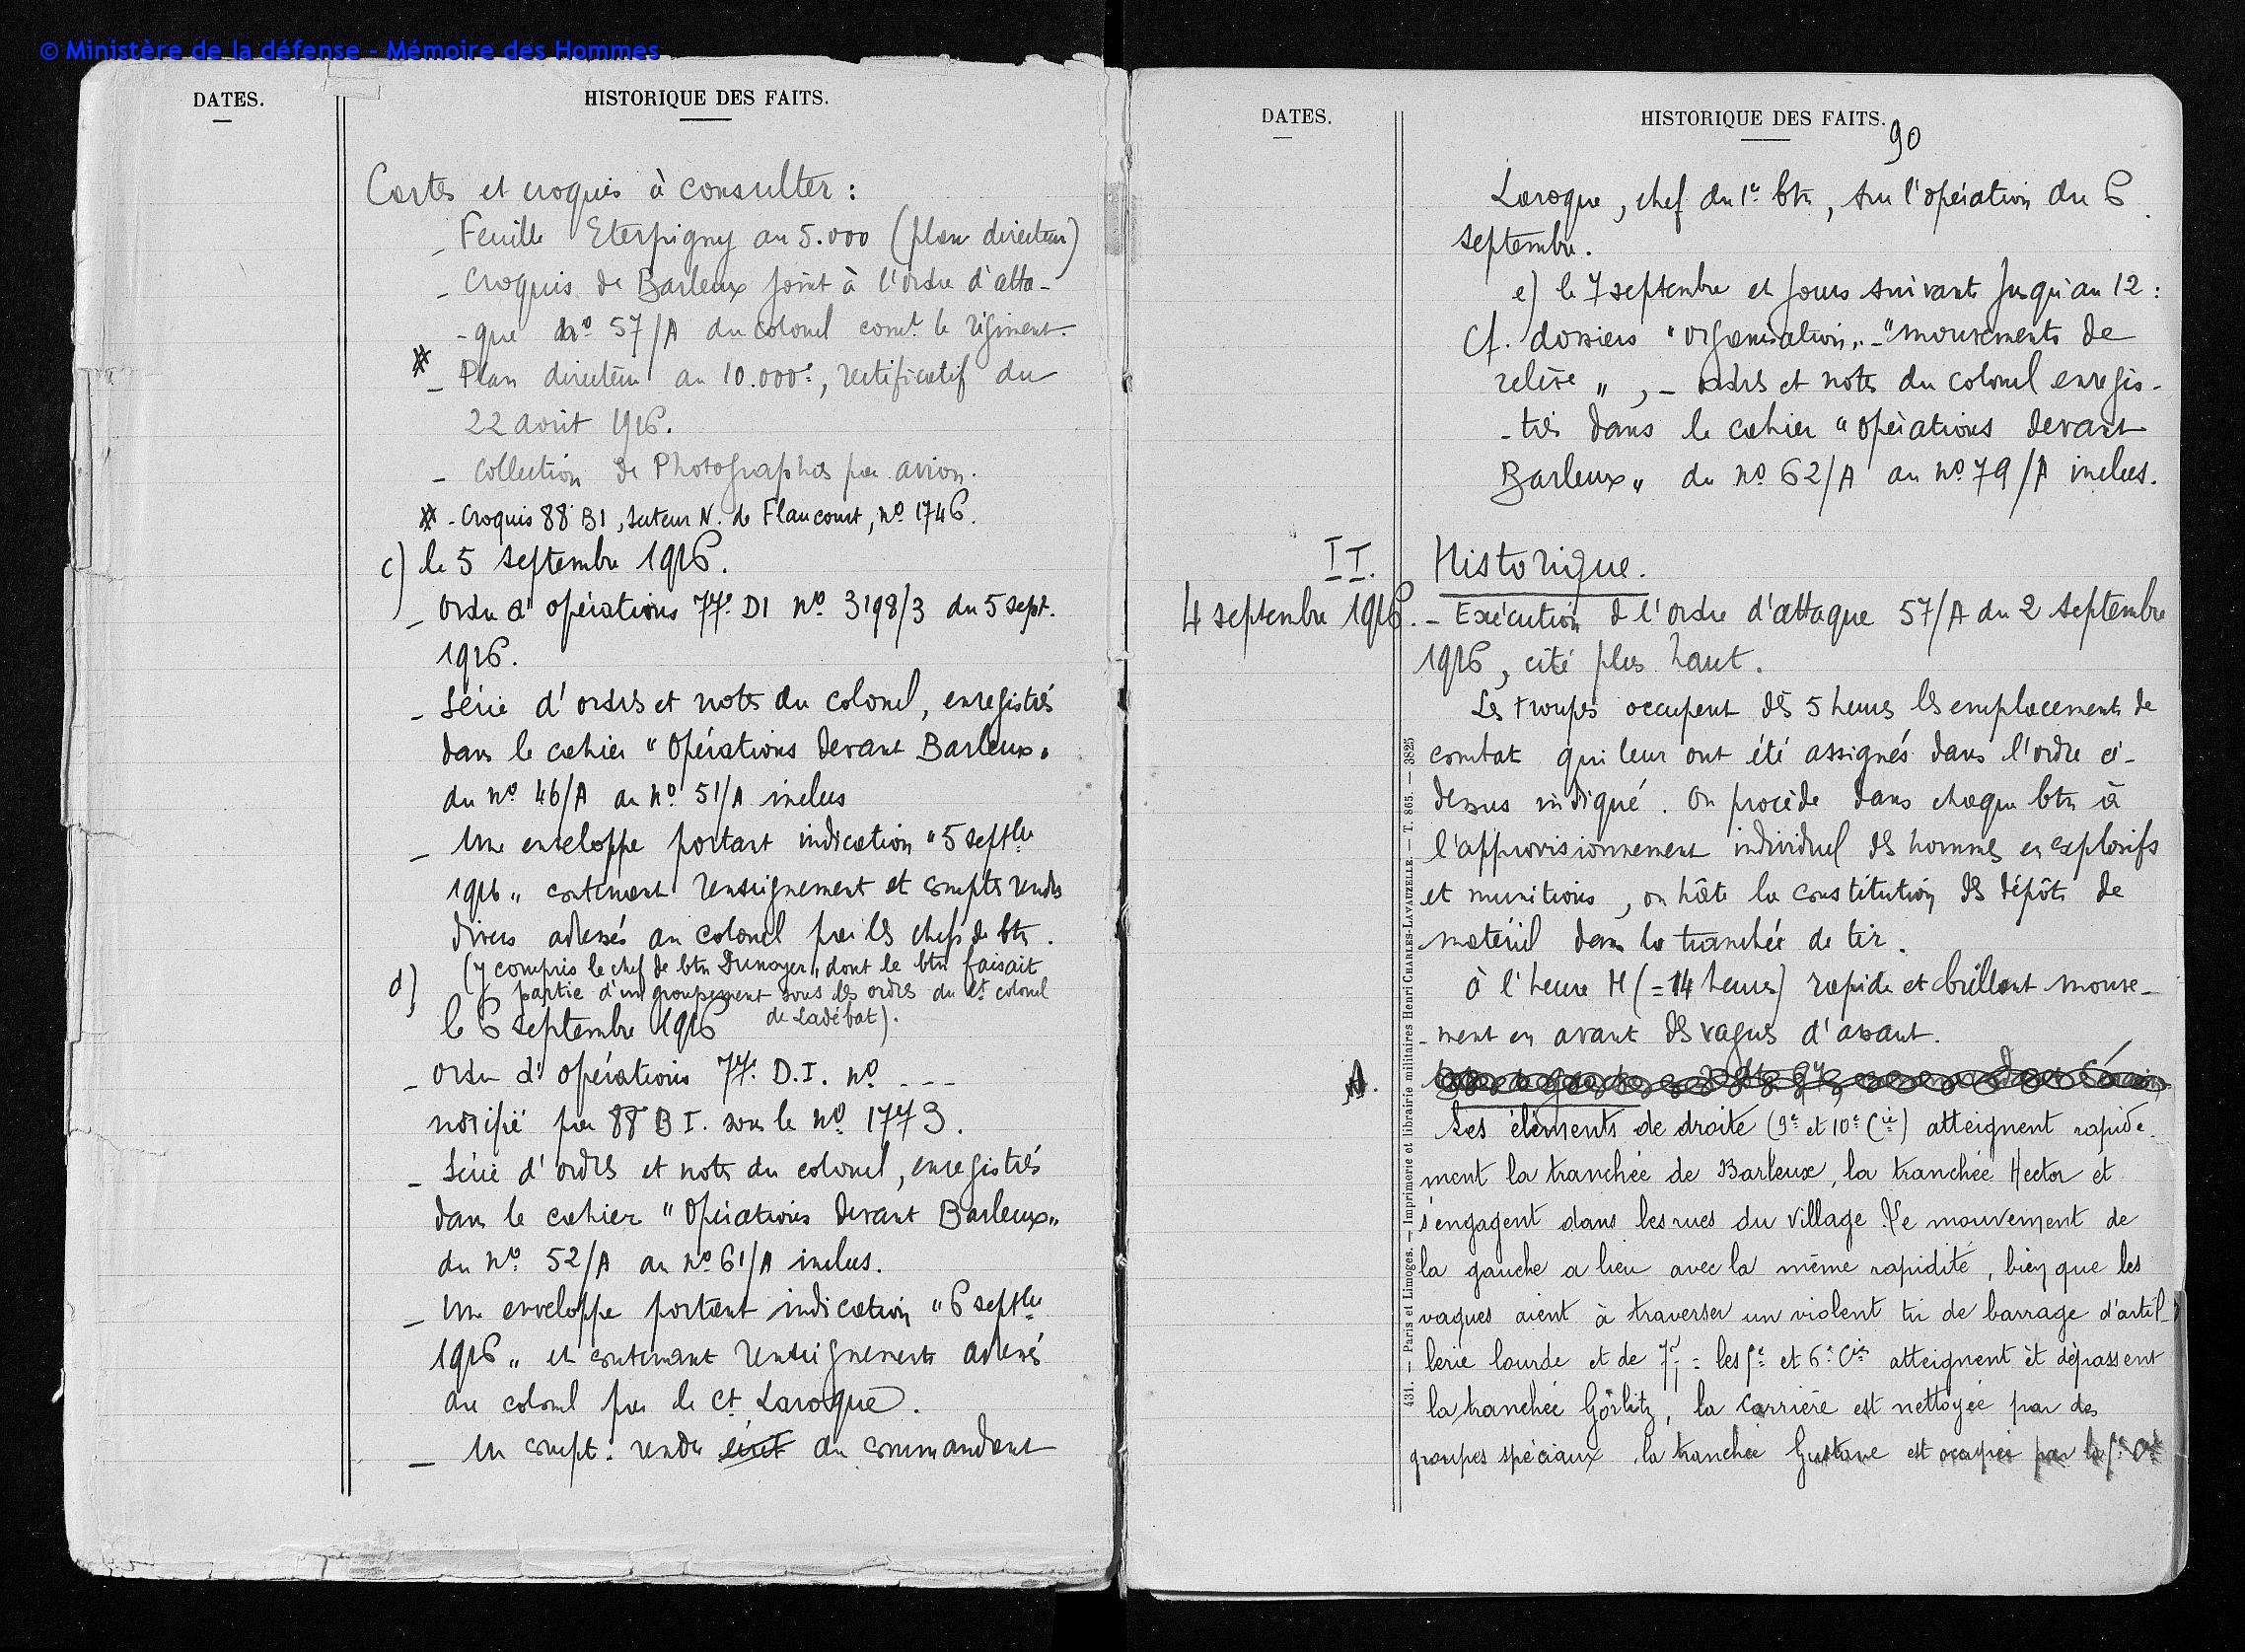 © Ministère de la défense - Mémoire des Hommes
DATES.
HISTORIQUE DES FAITS.
Cartes et croquis à consulter :
- Feuille Eterpigny au 5.000 (plan directeur)
- Croquis de Barleux joint à l'ordre d'atta-
-que no 57/A du colonel comt le régiment.
- Plan directeur au 10.000e, rectificatif du
22 août 1916.
- Collection de Photographies par avion.
- Croquis 88e BI, secteur N. de Flaucourt, no 1746.
c) le 5 septembre 1916.
- Ordre d'opérations 77e DI no 3198/3 du 5 sept.
1916.
- Série d'ordres et notes du colonel, enregistrés
dans le cahier "Opérations devant Barleux"
du no 46/A au no 51/A inclus
- Une enveloppe portant indication "5 septbre
1916" contenant renseignement et comptes rendus
divers adressés au colonel par les chefs de btn.
(y compris le chef de btn Dunoyer, dont le btn faisait
partie d'un groupement sous les ordres du Lt colonel
de Ladébat).
d) le 6 septembre 1916
- Ordre d'opérations 77e. D.I. no ---
notifié par 88e B I. sous le no 1773.
- Série d'ordres et notes du colonel, enregistrés
dans le cahier "Opérations devant Barleux"
du no 52/A au no 61/A inclus.
- Une enveloppe portant indication "6 septbre
1916" et contenant renseignements adressés
au colonel par le Ct Laroque.
- Un compte rendu écrit du commandant
DATES.
HISTORIQUE DES FAITS.
90
Laroque, chef du 1er btn, sur l'opération du 6
septembre.
e) le 7 septembre et jours suivants jusqu'au 12 :
Cf. dossiers "organisation" - "mouvements de
relève", - ordres et notes du colonel enregis-
-trés dans le cahier "opérations devant
Barleux" du no 62/A au no 79/A inclus.
II. Historique.
4 septembre 1916. - Exécution de l'ordre d'attaque 57/A du 2 septembre
1916, cité plus haut.
Les troupes occupent dès 5 heures les emplacements de
combat qui leur ont été assignés dans l'ordre ci-
dessus indiqué. On procède dans chaque btn à
l'approvisionnement individuel des hommes en explosifs
et munitions, on hâte la constitution des dépôts de
matériel dans la tranchée de tir.
À l'heure H (= 14 heures) rapide et brillant mouve-
-ment en avant des vagues d'assaut.
A.
Les éléments de droite (9e et 10e Cie) atteignent rapide-
ment la tranchée de Barleux, la tranchée Hector et
s'engagent dans les rues du village. Le mouvement de
la gauche a lieu avec la même rapidité, bien que les
vagues aient à traverser un violent tir de barrage d'artil-
lerie lourde et de 77 : les 5e et 6e Cies atteignent et dépassent
la tranchée Görlitz, la carrière est nettoyée par des
groupes spéciaux, la tranchée Gustave est occupée par la 5e Cie
431. — Paris et Limoges. — Imprimerie et librairie militaires Henri CHARLES-LAVAUZELLE. — T. 865. — 3825